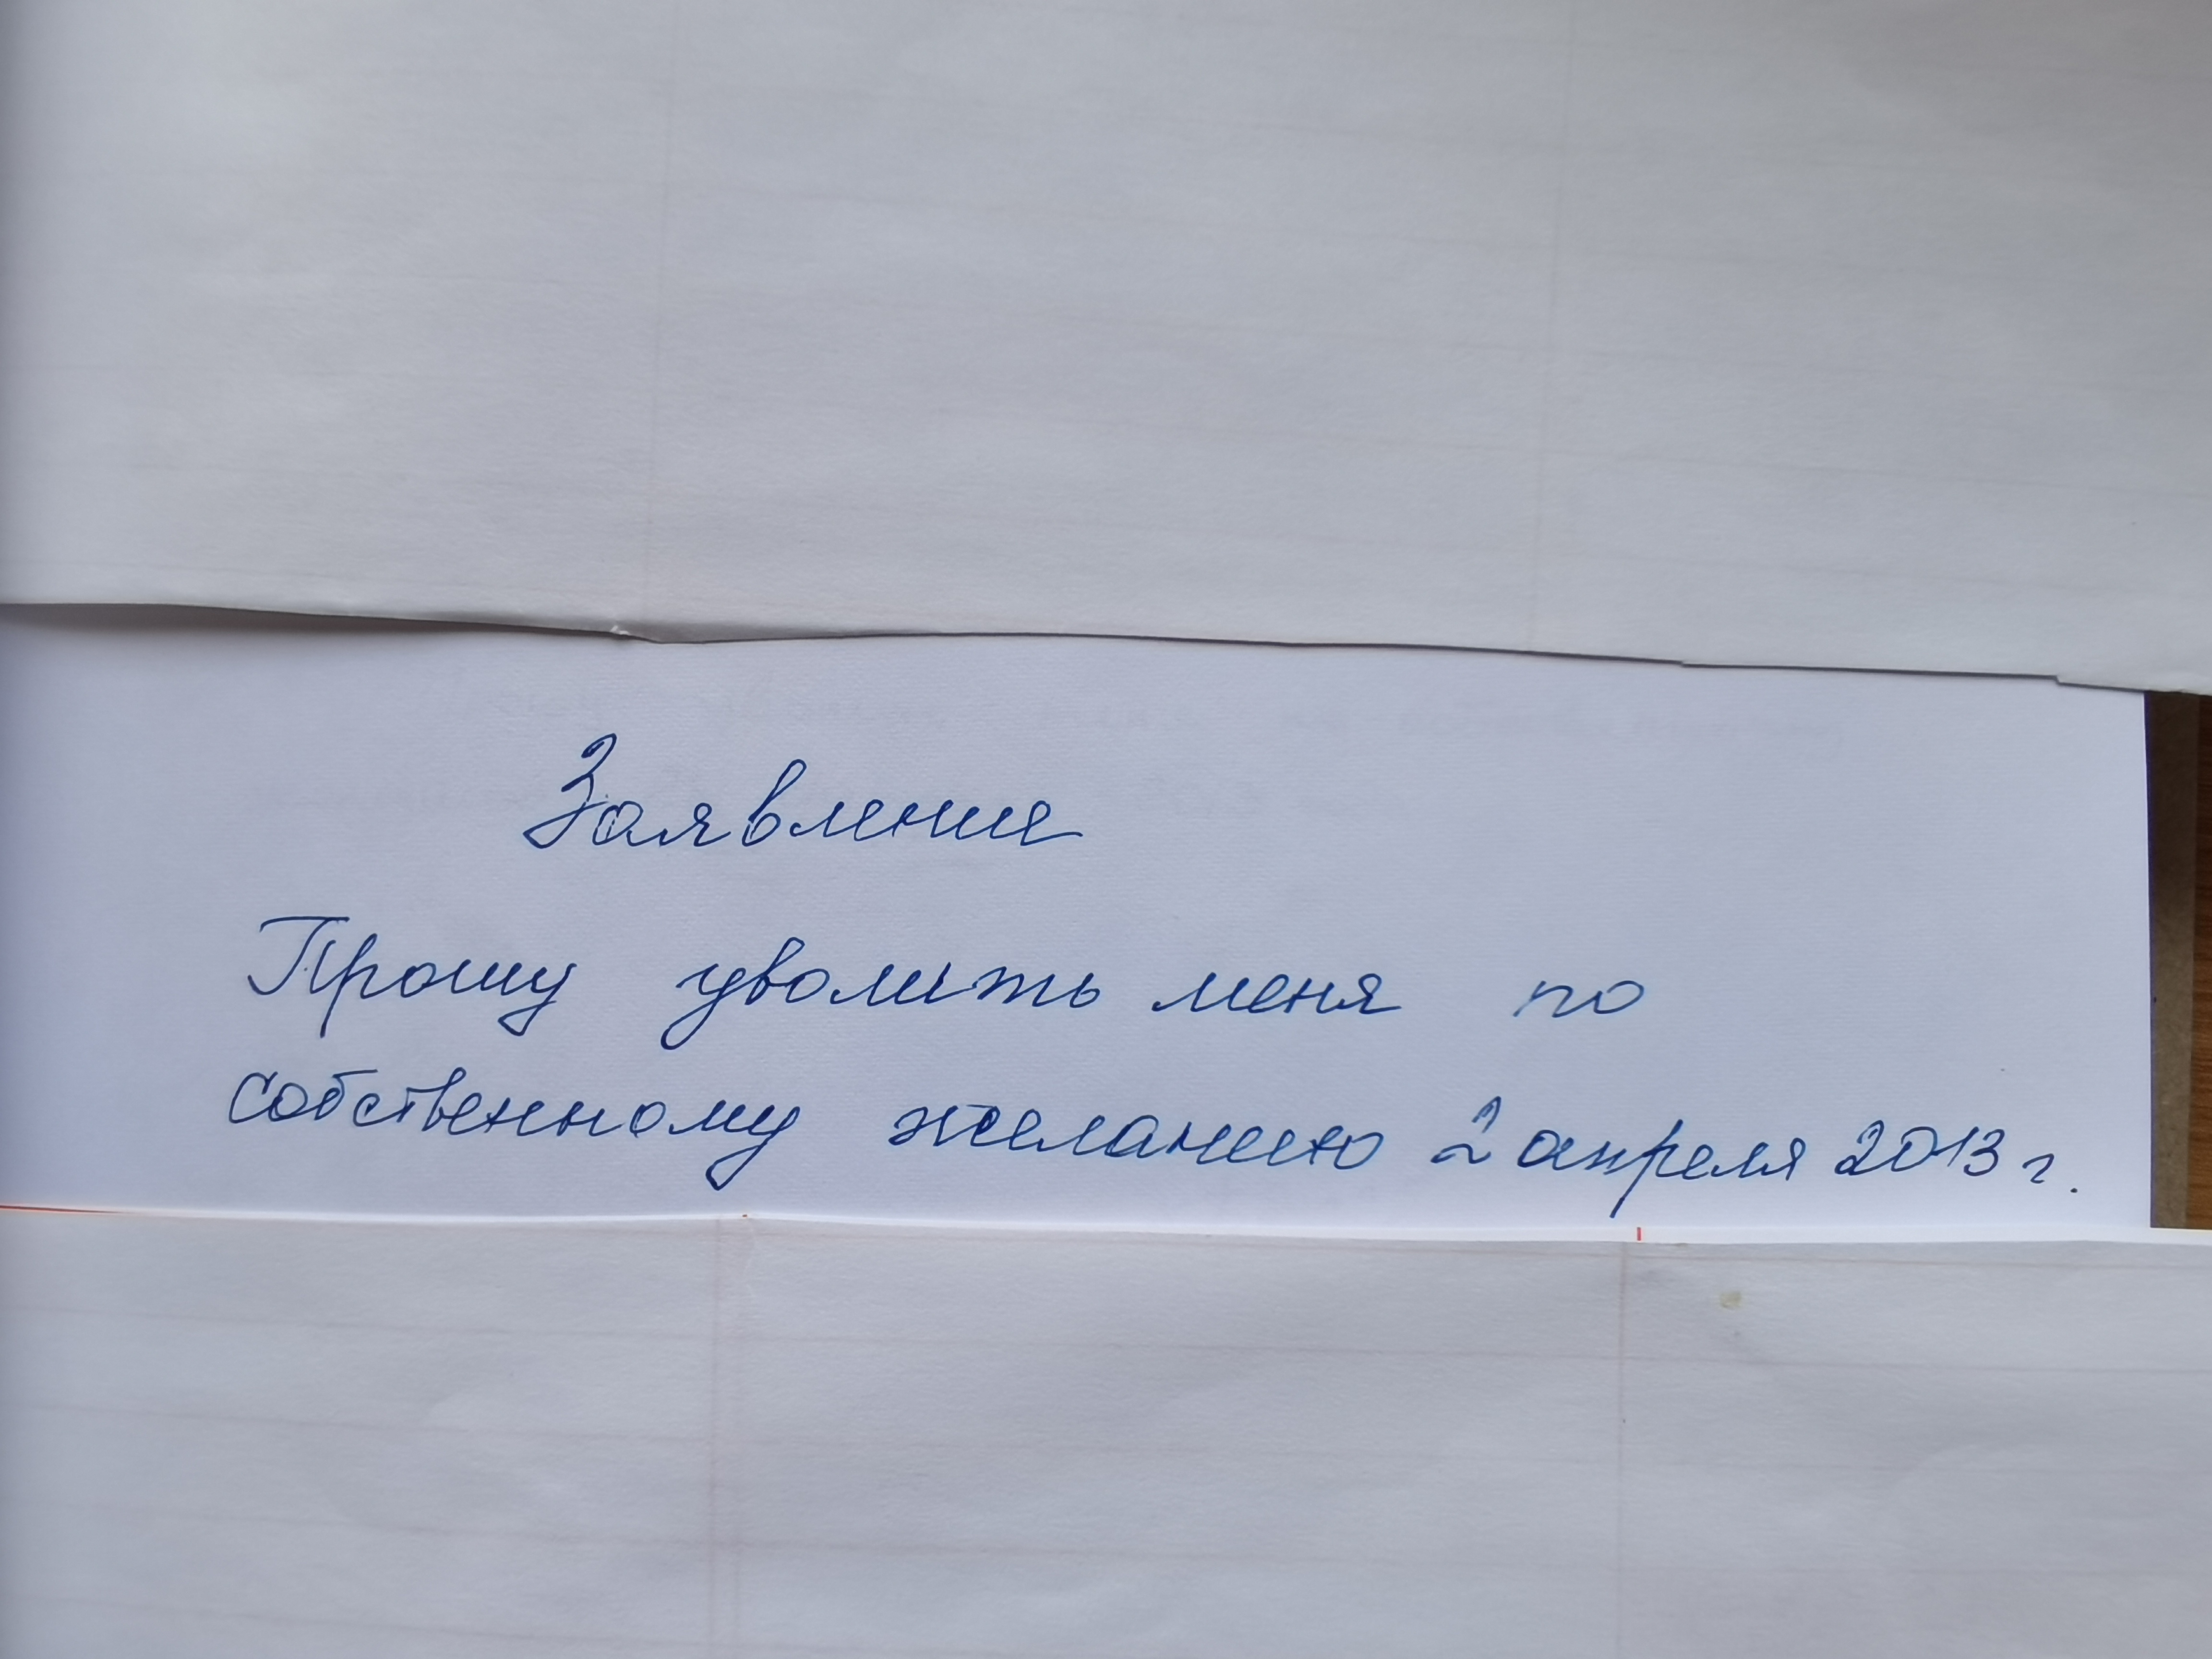 Заявление
Прошу уволить меня по
собственному желанию 2 апреля 2013 г.